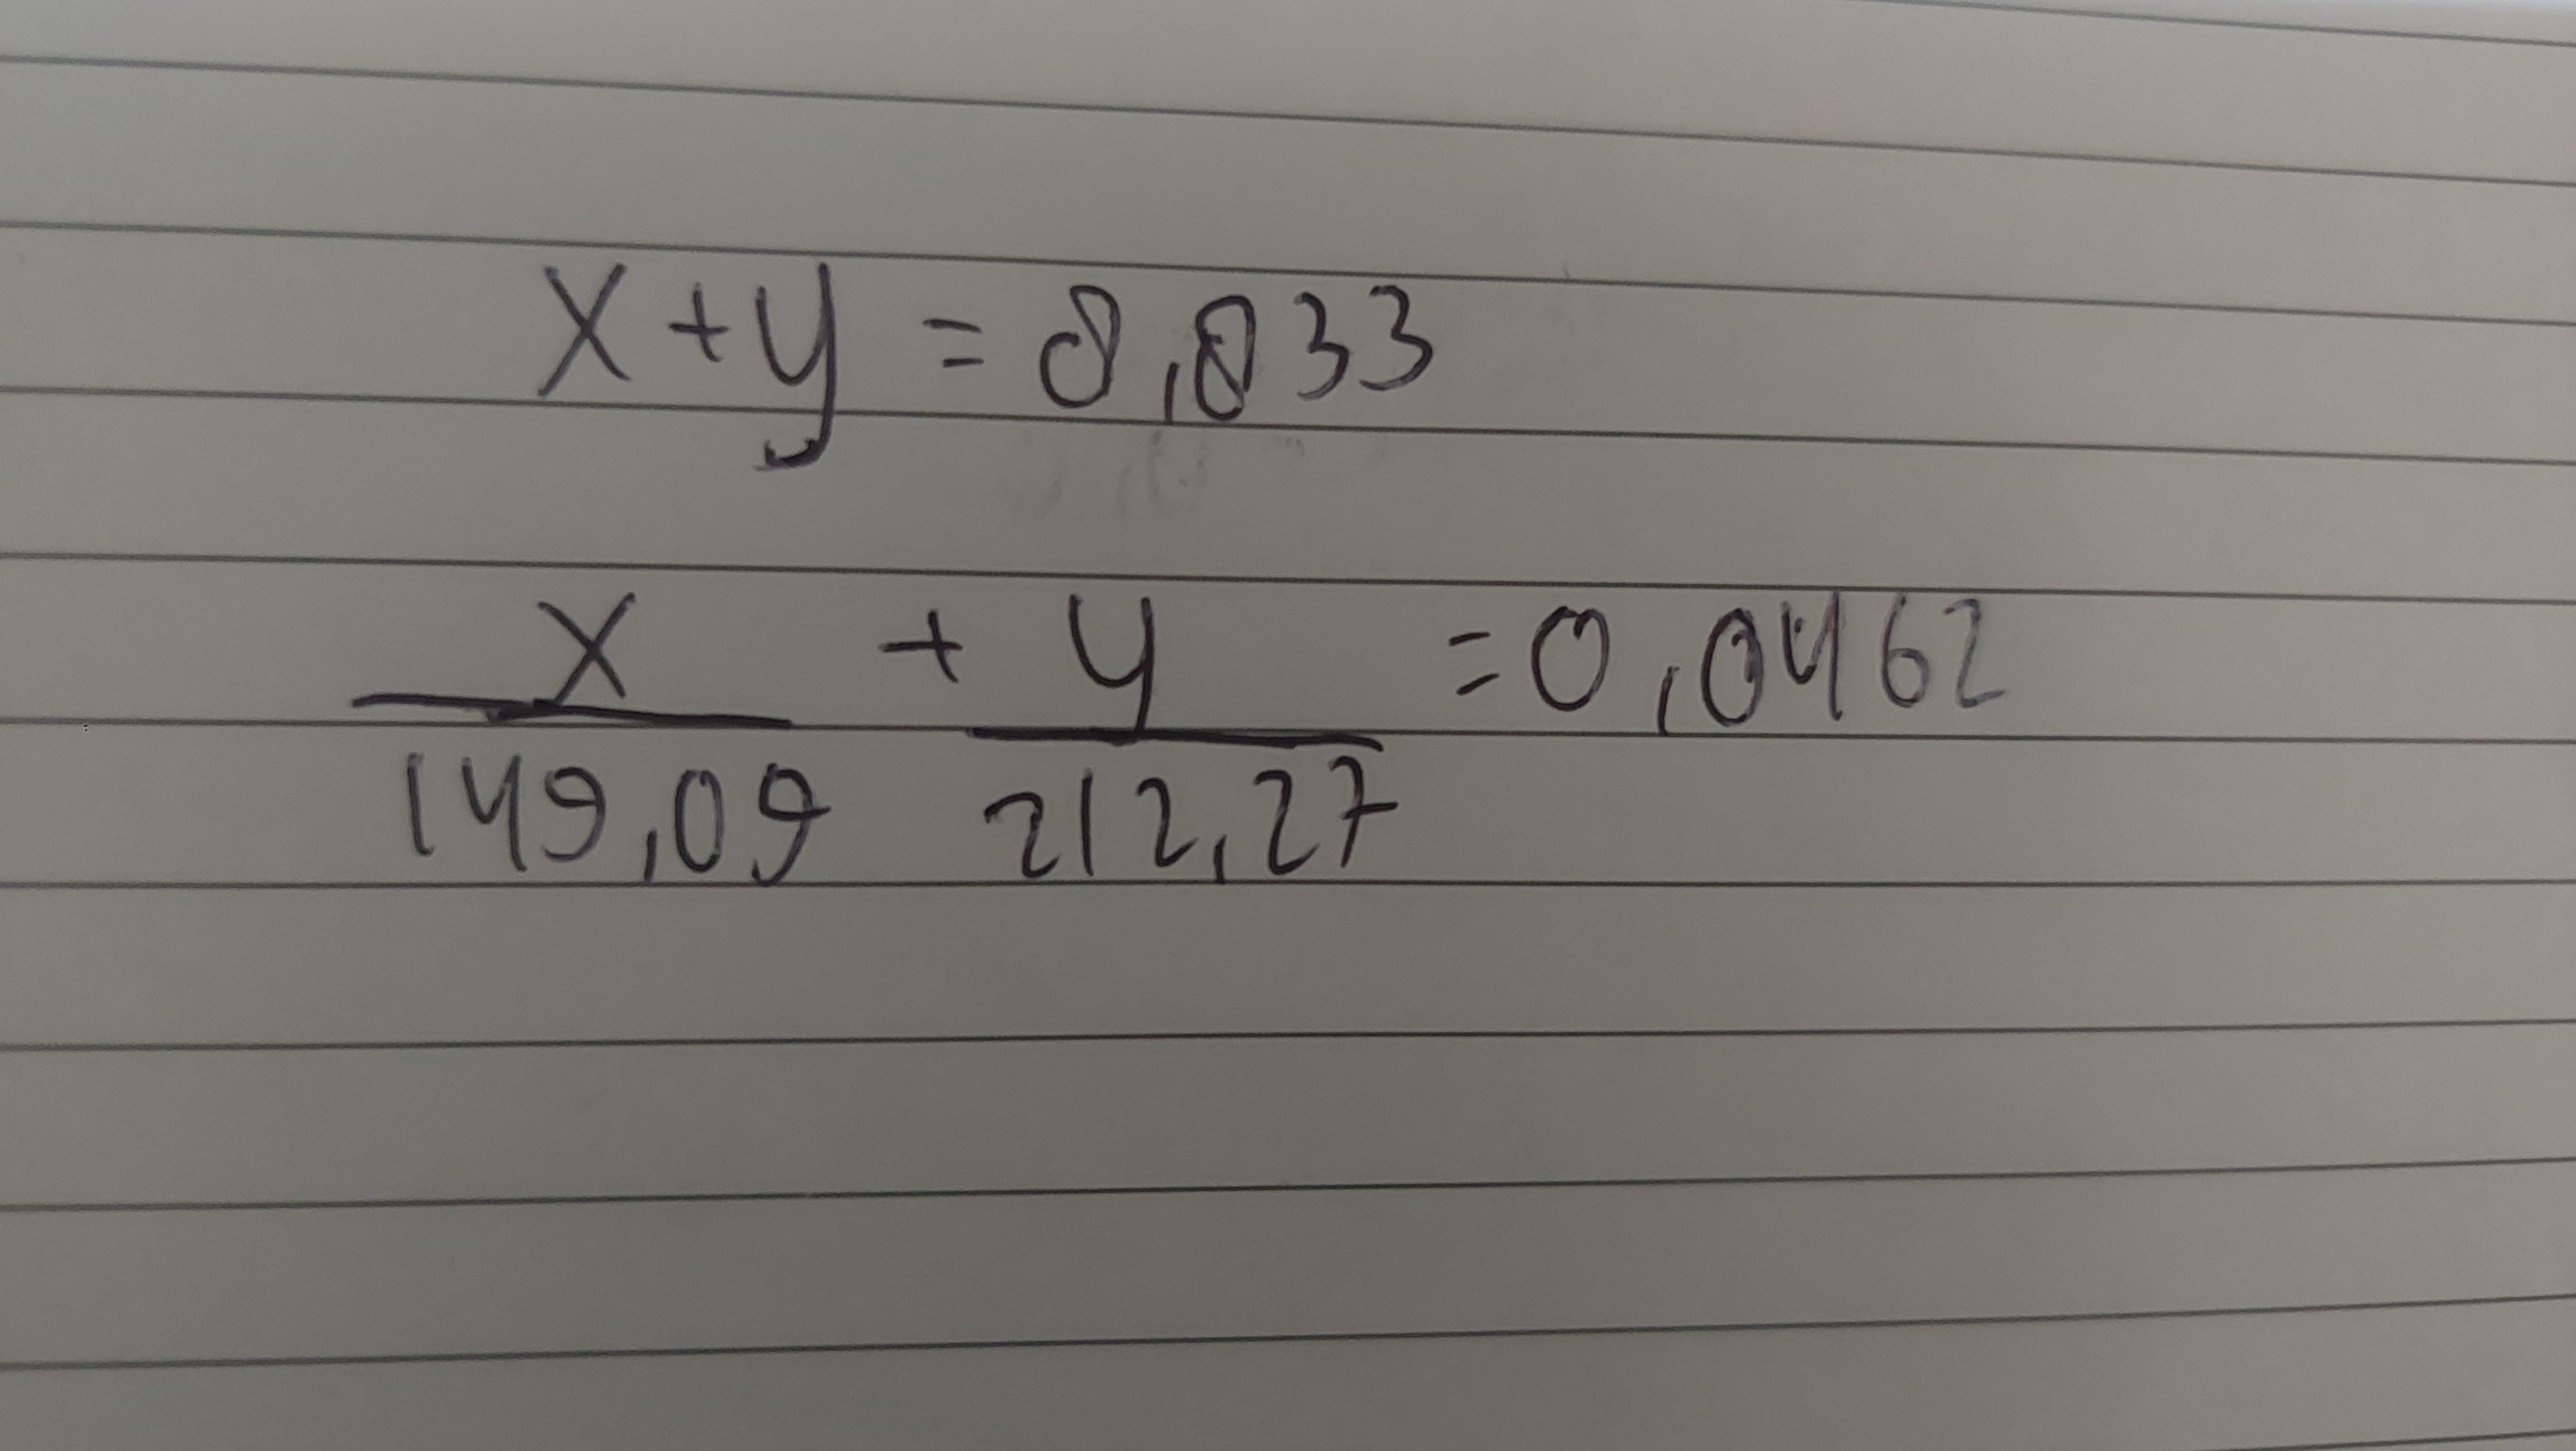 x + y = 8,833
x/149,09 + y/212,27 = 0,0462